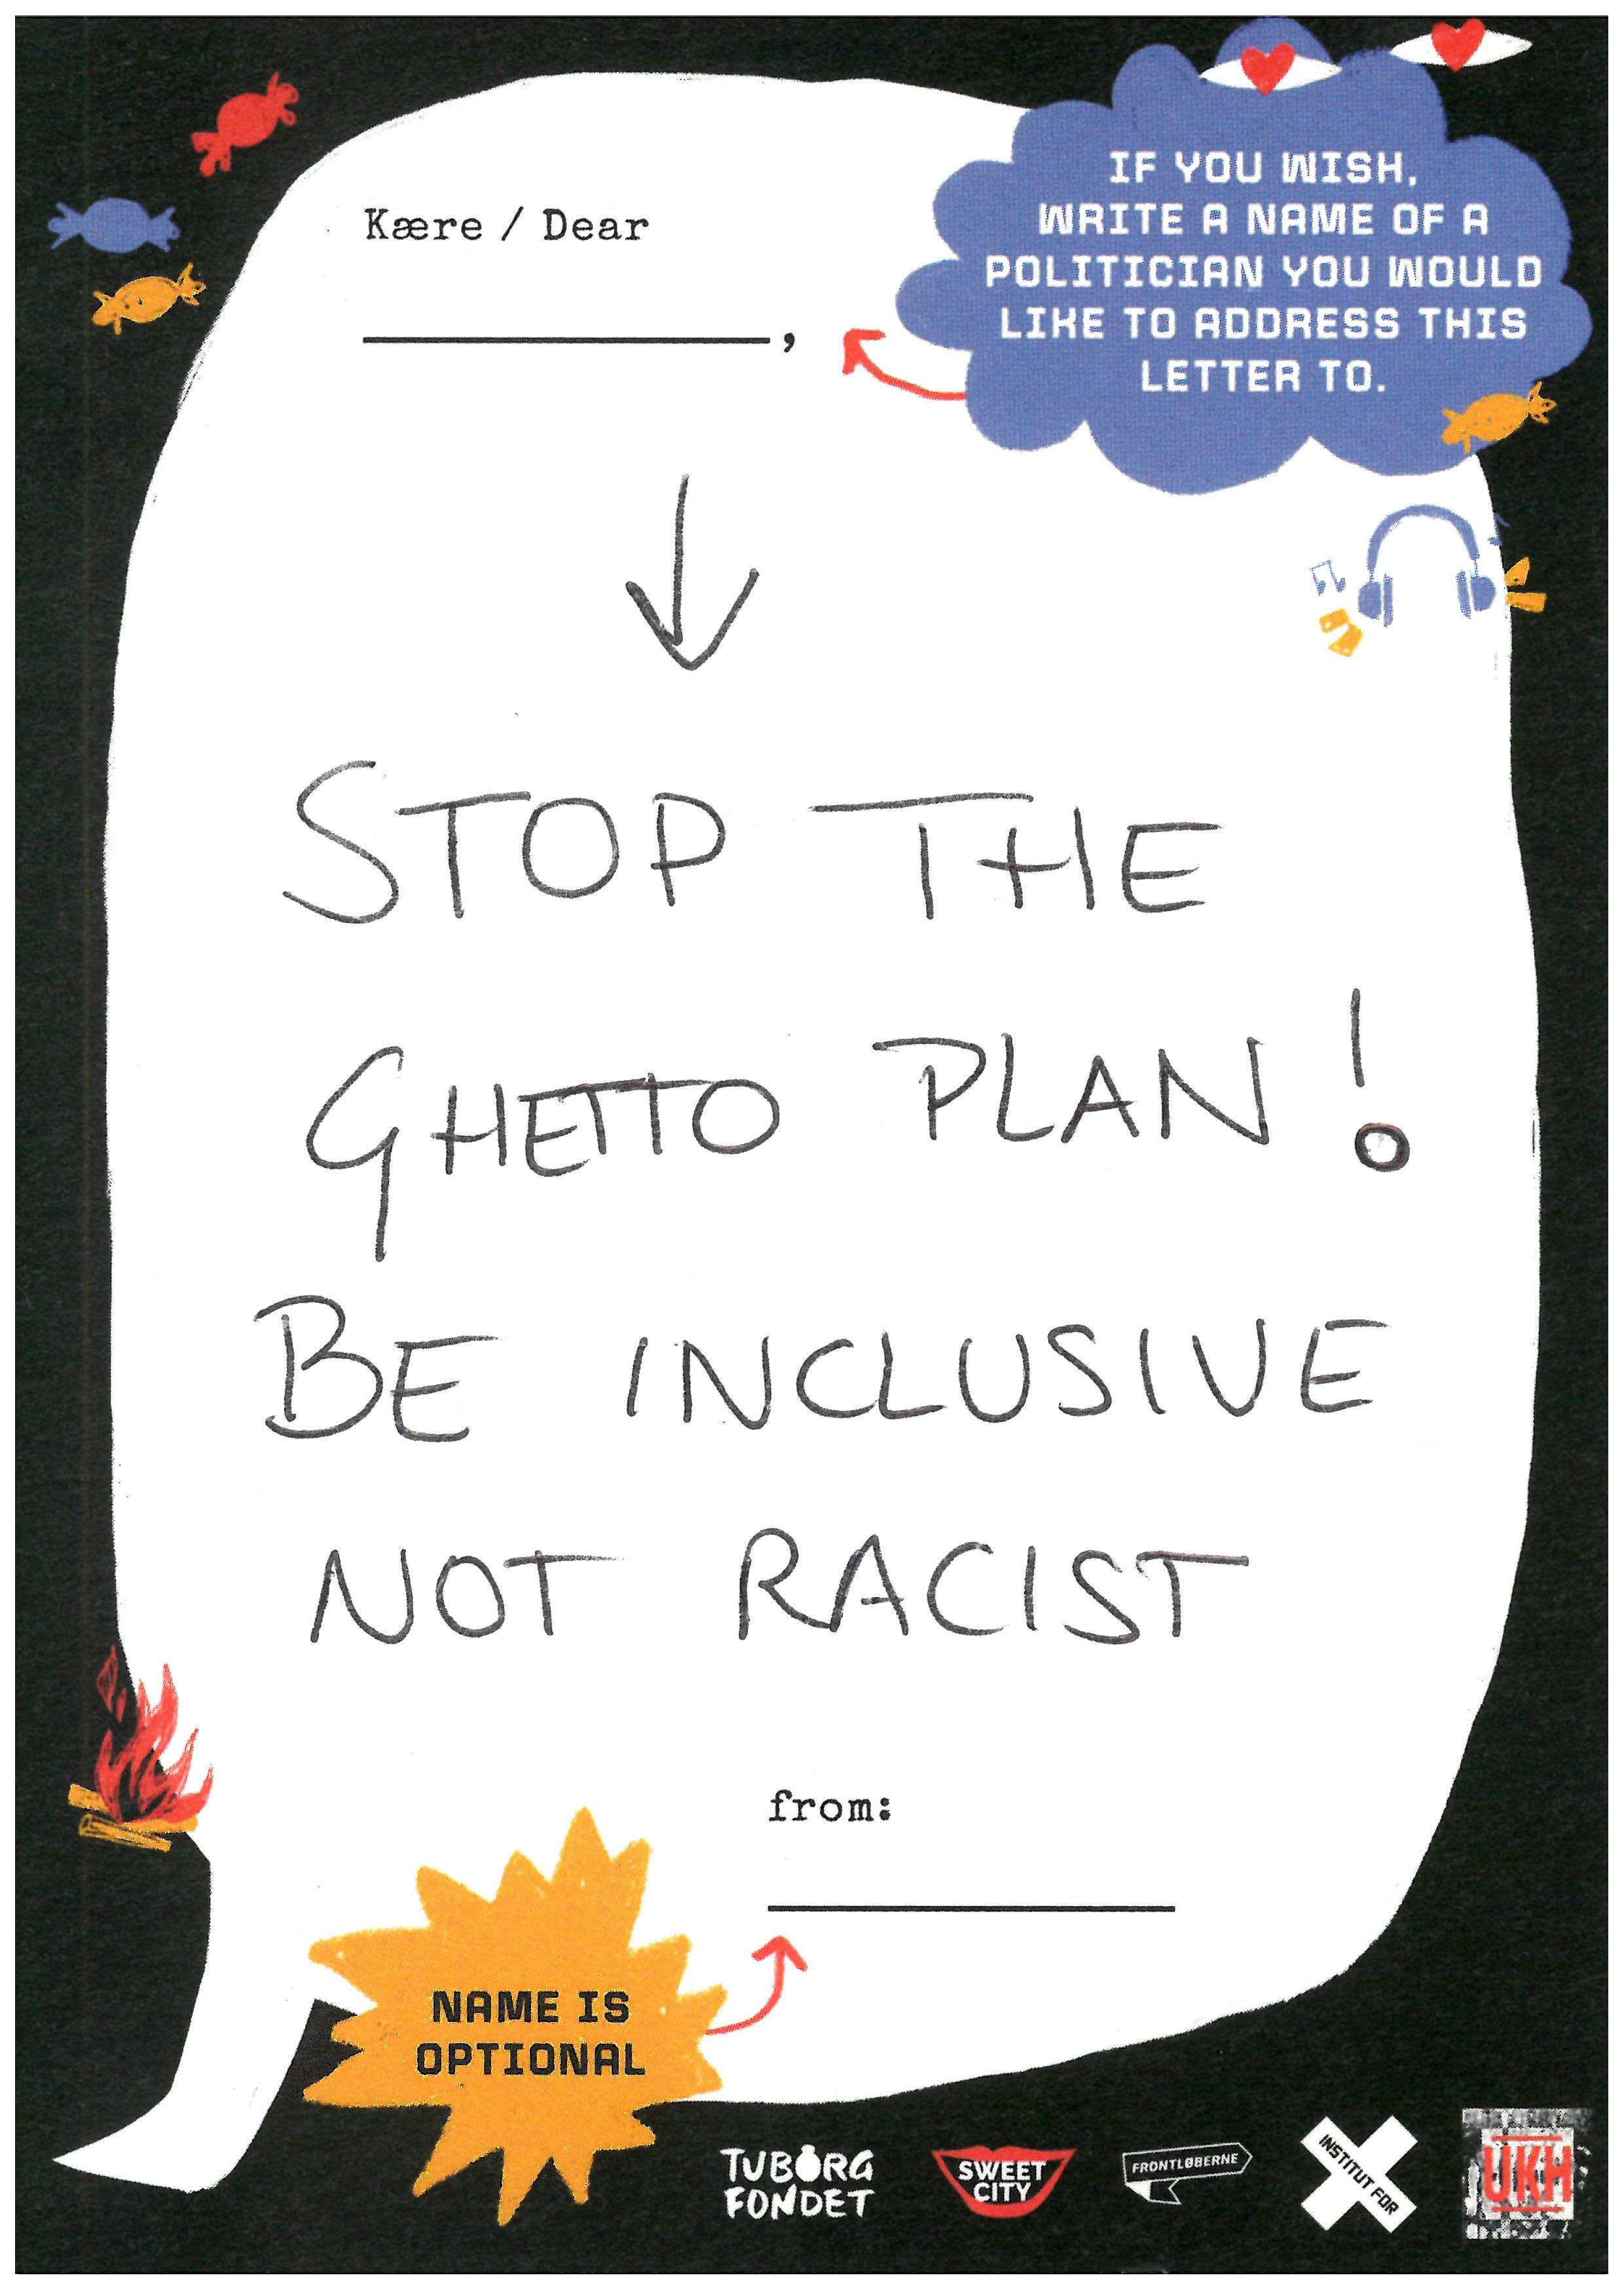 IF YOU WISH,
WRITE A NAME OF A
POLITICIAN YOU WOULD
LIKE TO ADDRESS THIS
LETTER TO.
Kære / Dear
,
STOP THE
GHETTO PLAN!
BE INCLUSIVE
NOT RACIST
from:
NAME IS
OPTIONAL
TUBORG
FONDET
SWEET
CITY
FRONTLØBERNE
INSTITUT FOR
UKH